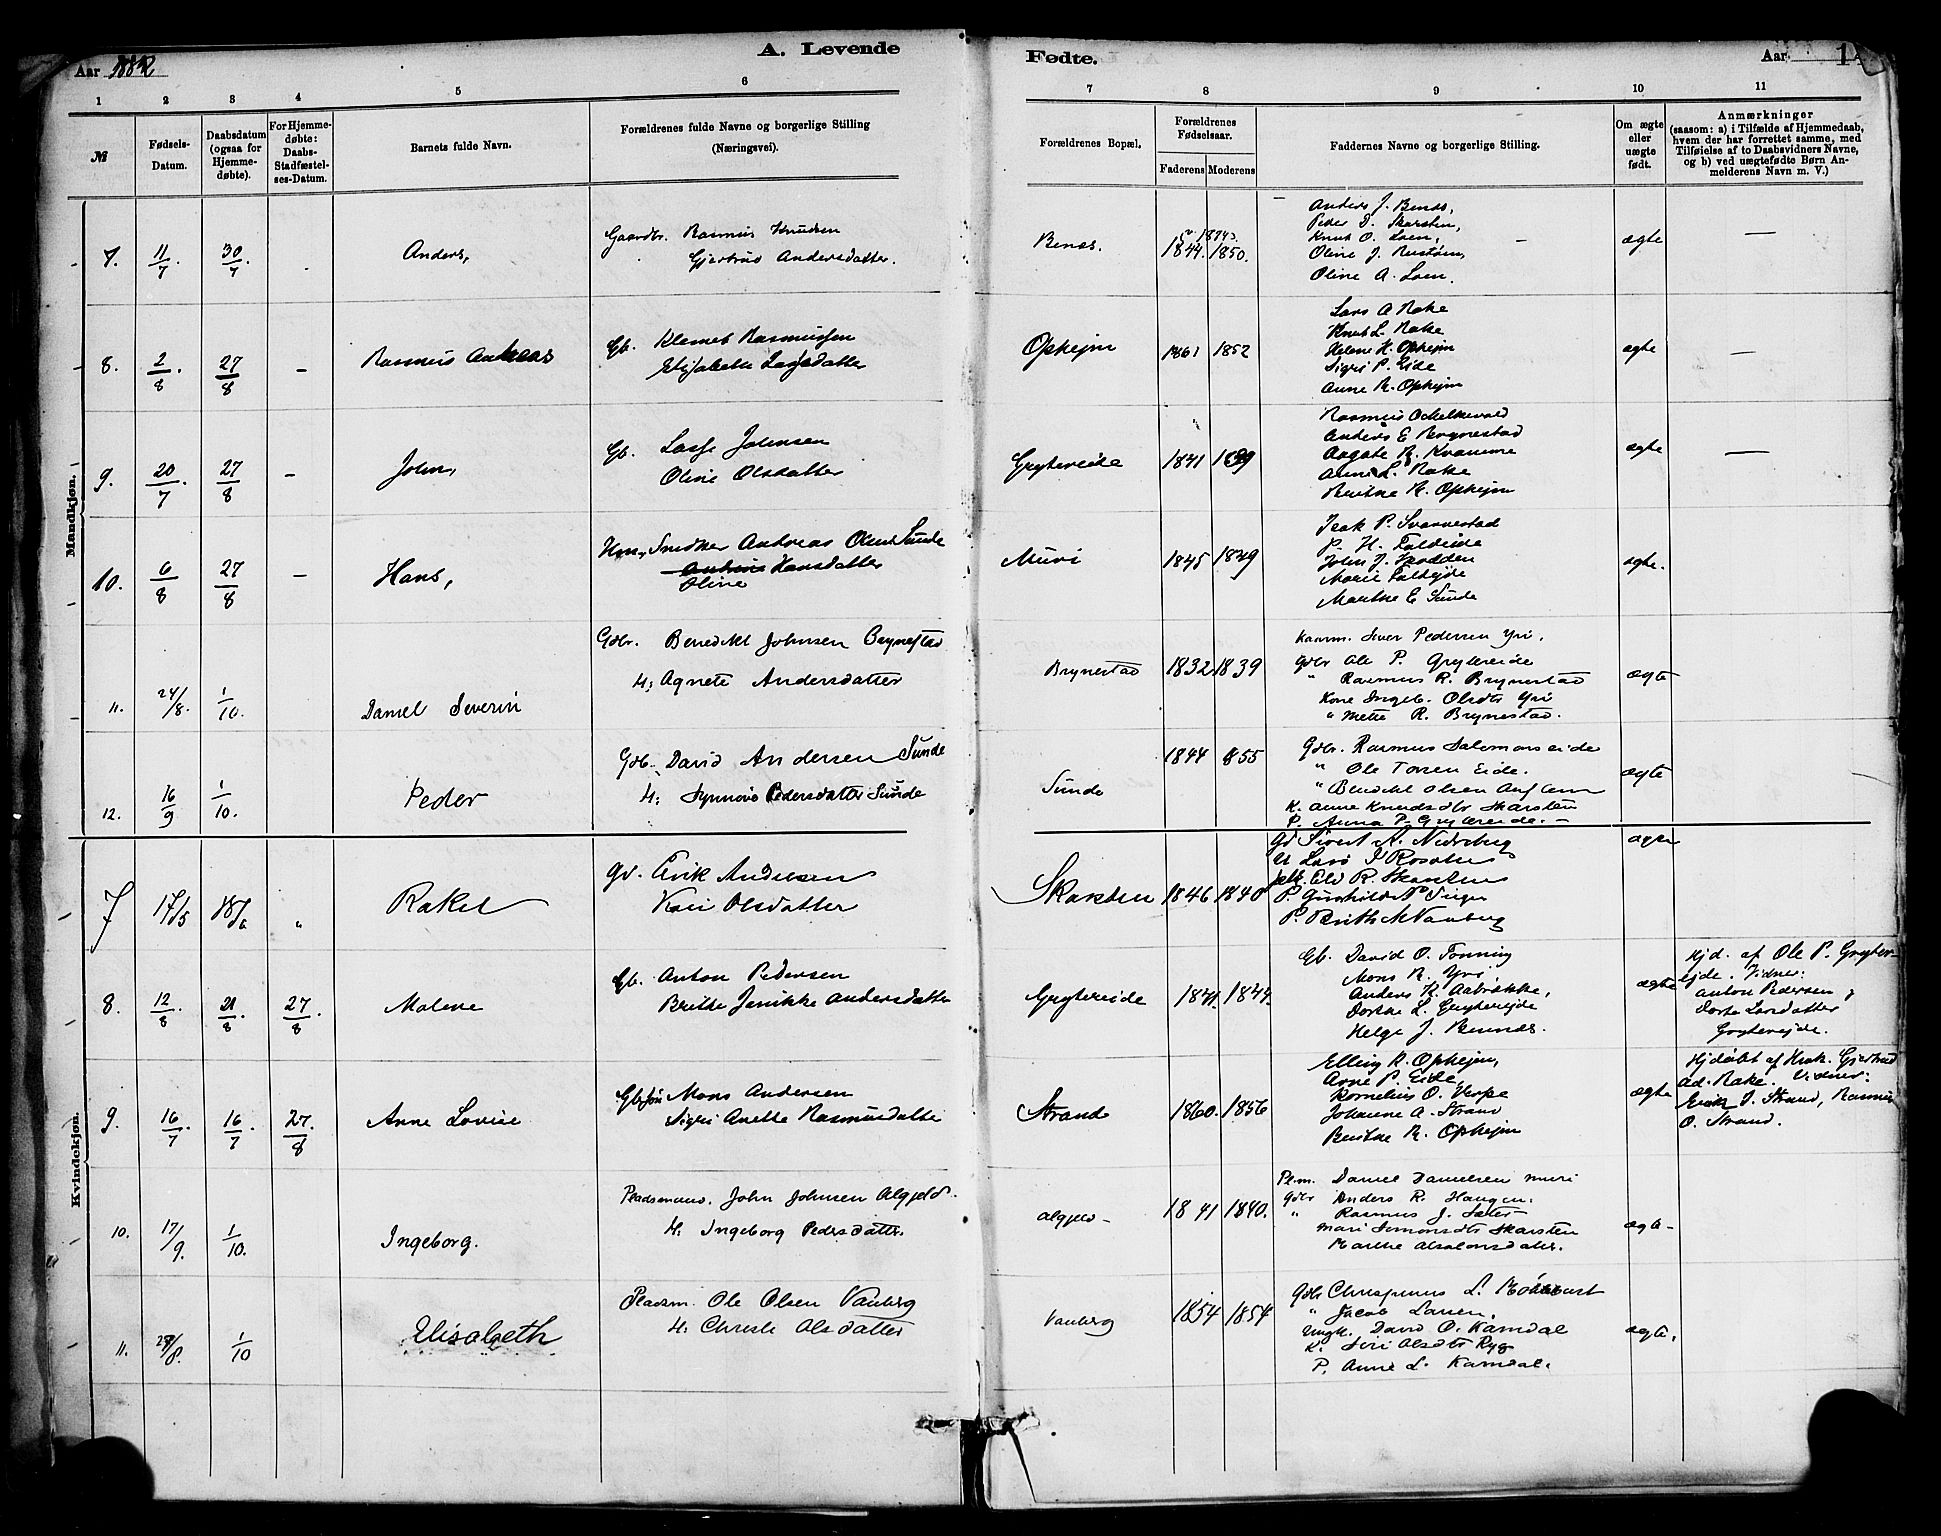 A. Levende
Fødte.
Aar 1882
Aar
14
1 2 3 4 5 6 7 8 9 10 11
№
Fødsels-
Datum.
Daabsdatum
(ogsaa for
Hjemme-
døbte).
For Hjemme-
døbte:
Daabs-
Stadfæstel-
ses-Datum.
Barnets fulde Navn.
Forældrenes fulde Navne og borgerlige Stilling
(Næringsvei).
Forældrenes Bopæl,
Forældrenes
Fødselsaar.
Faderens Moderens
Faddernes Navne og borgerlige Stilling.
Om ægte
eller
uægte
født.
Anmærkninger
(saasom: a) i Tilfælde af Hjemmedaab,
hvem der har forrettet samme, med
Tilføielse af to Daabsvidners Navne,
og b) ved uægtefødte Børn An-
melderens Navn m. V.)
Mandkjøn.
7. 11/7. 30/7 Anders,
Gaardbr. Rasmus Knudsen
Gjertrud Andersdatter.
1844. 1850.
Anders J. Benæs,
Peder D. Skarsten,
Knut O. Loen,
Oline J. Rustøen,
Oline A. Loen.
ægte
8. 2/8. 27/8 – Rasmus Andreas
Gb. Klemet Rasmussen
Elisabeth Larsdatter
Opheim 1861 1852
Lars A Rake
Knut L. Rake
Helene K. Ophejm
Sigri P. Eide
Anne R. Ophejm
ægte
9. 20/7. 27/8 – John,
Gb. Lasse Johnsen
Oline Olsdatter
Grytereide 1841
Anders E Brynestad
Aagate R. Kvamme
Anne L. Rake
Berthe R. Ophejm
ægte
10. 6/8 27/8 – Hans,
Snedker Andreas Olsen Sunde
Hansdatter
Oline
Muri 1845 1849
Isak P. Svarvestad
P. H. Faldeide
John J. Hodden
Marie Faldejde
Marthe E Sunde
ægte.
11. 24/8. 1/10. Daniel Severin
Gdbr. Benedikt Johnsen Brynestad
H; Agnete Andersdatter
Brynestad 1832 1839
Iver Pedersen Yri.
Gdbr Ole P. Grytereide
" Rasmus R. Brynestad
Kone Ingeb. Olsdtr Yri
" Mette R. Brynestad.
ægte
12. 16/9 1/10. Peder
Gdb. David Andersen Sunde
H; Synnove Pedersdatter Sunde
Sunde 1844 1855
Gdbr. Rasmus Salomonseide
" Ole Torsen Eide.
" Benedikt Olsen
K. Anne Knudsdtr Skarsten
P. Anna P. Grytereide. –
ægte
Kvindekjøn.
7 17/5 18/6 " Rakel
Gd. Eirik Andersen
Kari Olsdatter
Skarsten 1846 1840
Gd Sivert A. Nedreberg
R. Skarsten
P. Gunhilde P
P. Brithe M Vanberg
ægte
8. 12/8. 21/8. 27/8. Malene
Gb. Anton Pedersen
Brithe Jenikke Andersdatter
Grytereide 1841. 1844.
Gb. David O. Tonning
Mons R. Yri,
Anders K. Aabrække,
Dorthe L. Grytereide
Helge J. Bennæs.
ægte
Hjd. af Ole P. Gryter-
ejde. Vidner:
Anton Pedersen,
Dorte Larsdatter
Grytereide.
9. 16/7. 16/7. 27/8. Anne Lovise
Mons Andersen
Sigri Anette Rasmusdatter
Strande 1860. 1856
Elling R. Ophejm,
Arne P. Eide,
Kornelius O. Verpe
Johanne A. Strand
Berthe R. Ophejm
ægte
Hjdøbt af Gjertrud
Ad. Rake. Vidner:
J. Strand, Rasmus
O. Strand.
10. 17/9. 1/10. Ingeborg.
Pladsmand. John Johnsen Algjeld.
H. Ingeborg Pedersdatter.
Algjeld – 1841 1840.
Plm. Daniel Danielsen Muri
Gdbr Anders R. Haugen.
" Rasmus J. Sæter
Mari Simonsdtr Skarsten
Marthe Absalonsdatter.
ægte –
11. 1/10 Elisabeth
Pladsm. Ole Olsen Vanberg
Vanberg 1854 1854
" Jacob Larsen.
Ungk. David O. Kamdal
K. Siri Olsdtr Ryg
P. Anne L. Kamdal.
ægte.